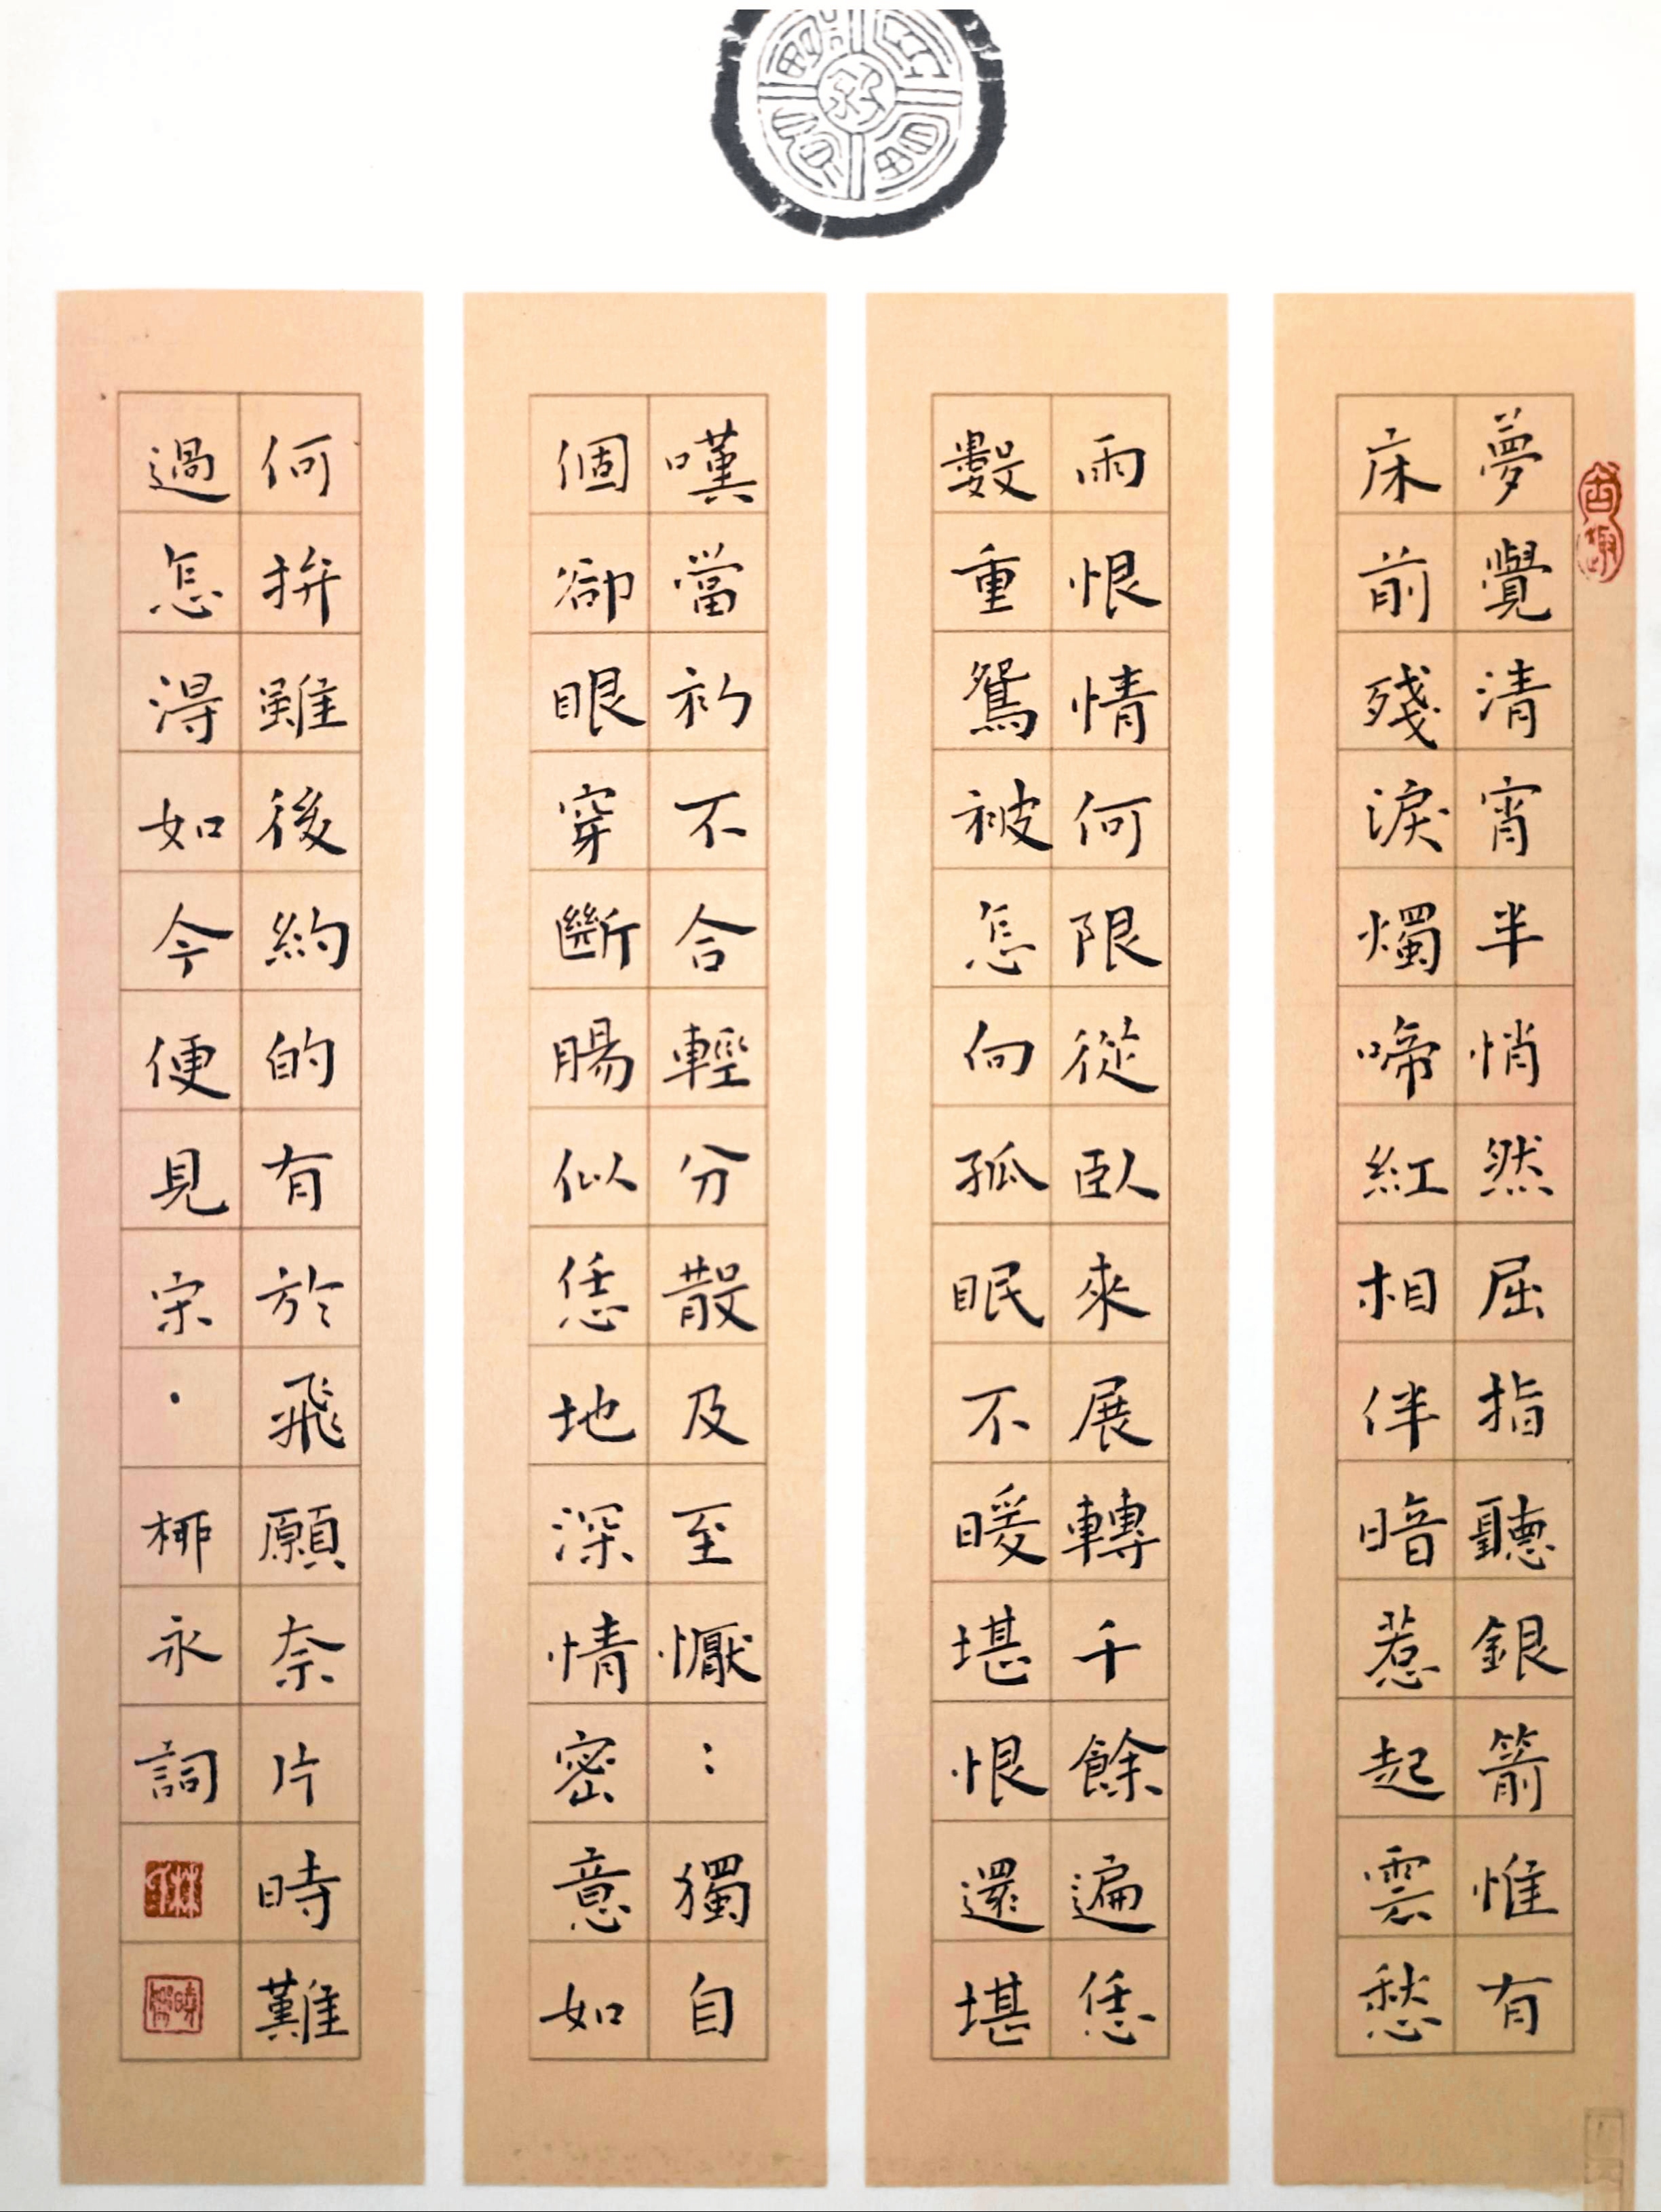 夢覺清宵半悄然屈指聽銀箭惟有
床前殘淚燭啼紅相伴暗惹起雲愁
雨恨情何限從臥來展轉千餘遍恁
數重鴛被怎向孤眠不暖堪恨還堪
嘆當初不合輕分散及至懨:獨自
個卻眼穿斷腸似恁地深情密意如
何拚雖後約的有於飛願奈片時難
過怎得如今便見宋·柳永詞